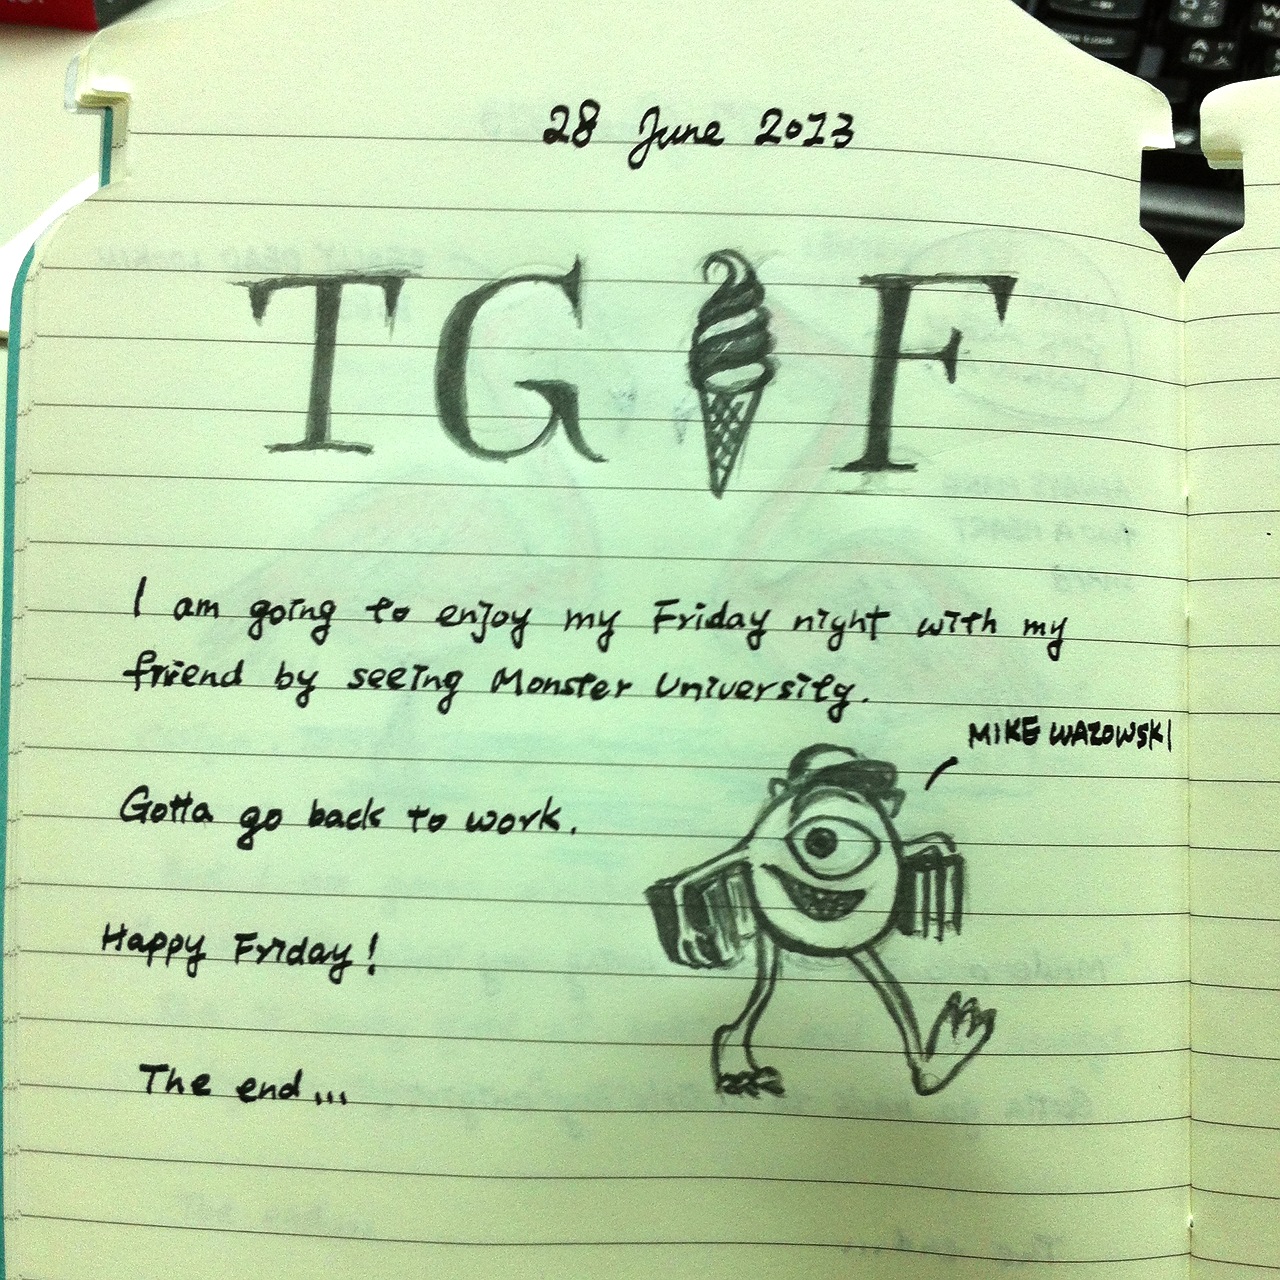 28 June 2013
TG F
I am going to enjoy my Friday night with my
friend by seeing Monster University.
MIKE WAZOWSKI
Gotta go back to work.
Happy Friday!
The end...